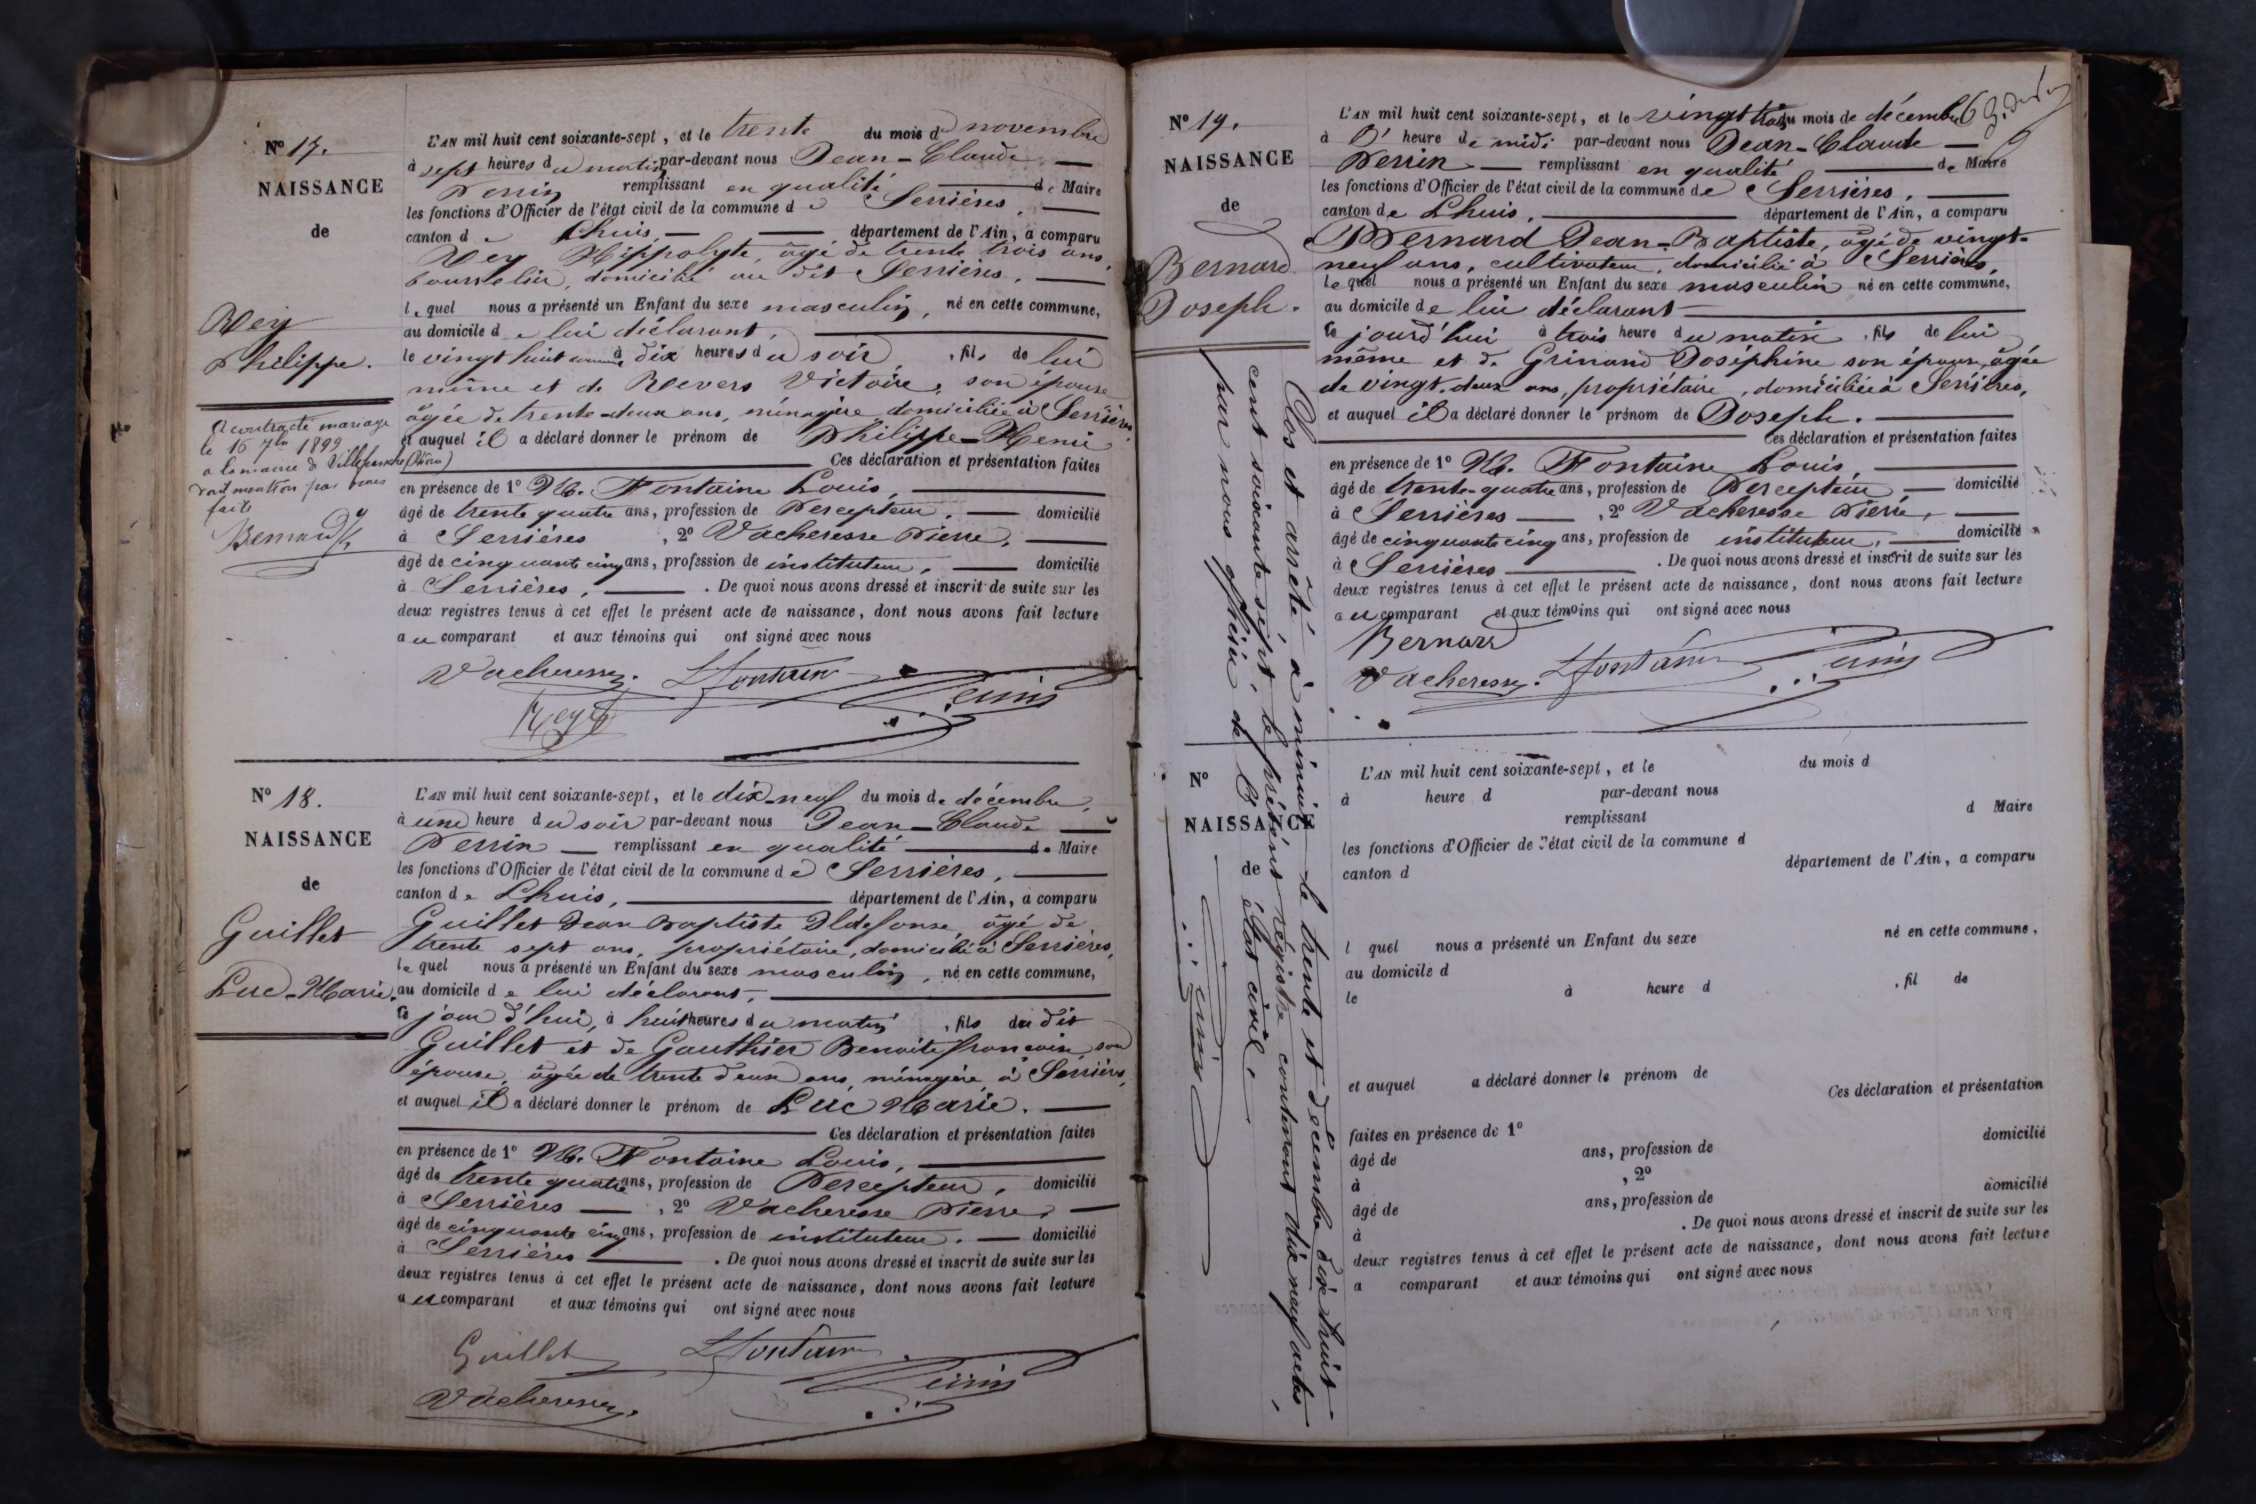 N° 17.
NAISSANCE
de
Rey
Philippe.
A contracté mariage
le 16 7bre 1899
a la mairie de Villefranche (Rhône)
dont mention par nous
faite
Bernard
L'AN mil huit cent soixante-sept, et le trente du mois de novembre
à sept heures du matin par-devant nous Jean-Claude
Perrin remplissant en qualité de Maire
les fonctions d'Officier de l'état civil de la commune de Serrières,
canton de Lhuis, département de l'Ain, a comparu
Rey Hippolyte, âgé de trente trois ans,
bourrelier, domicilié au dit Serrières,
lequel nous a présenté un Enfant du sexe masculin, né en cette commune,
au domicile de lui déclarant,
le vingt huit courant à dix heures du soir, fils de lui
même et de Revers Victoire, son épouse
âgée de trente-deux ans, ménagère domiciliée à Serrières,
et auquel il a déclaré donner le prénom de Philippe-Henri
Ces déclaration et présentation faites
en présence de 1° M. Fontaine Louis,
âgé de trente quatre ans, profession de Percepteur, domicilié
à Serrières, 2° Vacheresse Pierre,
âgé de cinquante cinq ans, profession de instituteur, domicilié
à Serrières, . De quoi nous avons dressé et inscrit de suite sur les
deux registres tenus à cet effet le présent acte de naissance, dont nous avons fait lecture
au comparant et aux témoins qui ont signé avec nous
Vacheresse. L Fontaine Perrin
Rey
N° 18.
NAISSANCE
de
Guillet
Luc-Marie.
L'AN mil huit cent soixante-sept, et le dix-neuf du mois de décembre,
à une heure du soir par-devant nous Jean-Claude
Perrin remplissant en qualité de Maire
les fonctions d'Officier de l'état civil de la commune de Serrières,
canton de Lhuis, département de l'Ain, a comparu
Guillet Jean Baptiste Ildefonse, âgé de
trente sept ans, propriétaire, domicilié à Serrières,
lequel nous a présenté un Enfant du sexe masculin, né en cette commune,
au domicile de lui déclarant,
ce jour d'hui, à huit heures du matin, fils du dit
Guillet et de Gauthier Benoite françoise, son
épouse, âgée de trente deux ans, ménagère, à Serrières,
et auquel il a déclaré donner le prénom de Luc Marie.
Ces déclaration et présentation faites
en présence de 1° M. Fontaine Louis,
âgé de trente quatre ans, profession de Percepteur, domicilié
à Serrières, 2° Vacheresse Pierre,
âgé de cinquante cinq ans, profession de instituteur. domicilié
à Serrières . De quoi nous avons dressé et inscrit de suite sur les
deux registres tenus à cet effet le présent acte de naissance, dont nous avons fait lecture
au comparant et aux témoins qui ont signé avec nous
Guillet L Fontaine Perrin
Vacheresse.
N° 19.
NAISSANCE
de
Bernard
Joseph.
L'AN mil huit cent soixante-sept, et le vingt trois du mois de décembre
à l' heure de midi par-devant nous Jean-Claude
Perrin remplissant en qualité de Maire
les fonctions d'Officier de l'état civil de la commune de Serrières,
canton de Lhuis, département de l'Ain, a comparu
Bernard Jean-Baptiste, âgé de vingt-
neuf ans, cultivateur, domicilié à Serrières,
lequel nous a présenté un Enfant du sexe masculin né en cette commune,
au domicile de lui déclarant
ce jourd'hui à trois heure du matin, fils de lui
même et de Grinand Joséphine son épouse, âgée
de vingt-deux ans, propriétaire, domiciliée à Serrières,
et auquel il a déclaré donner le prénom de Joseph.
Ces déclaration et présentation faites
en présence de 1° M. Fontaine Louis,
âgé de trente-quatre ans, profession de Percepteur domicilié
à Serrières, 2° Vacheresse Pierre,
âgé de cinquante cinq ans, profession de instituteur, domicilié
à Serrières . De quoi nous avons dressé et inscrit de suite sur les
deux registres tenus à cet effet le présent acte de naissance, dont nous avons fait lecture
au comparant et aux témoins qui ont signé avec nous
Bernard
Vacheresse. L Fontaine Perrin
Clos et arrêté à minuit le trente et décembre dix huit
cent soixante sept, le présent régistre contenant dix neuf actes,
par nous officier de l'état civil.
Perrin
N°
NAISSANCE
de
L'AN mil huit cent soixante-sept, et le du mois d
à heure d par-devant nous
remplissant d Maire
les fonctions d'Officier de l'état civil de la commune d
canton d département de l'Ain, a comparu
l quel nous a présenté un Enfant du sexe né en cette commune,
au domicile d
le à heure d , fil de
et auquel a déclaré donner le prénom de
Ces déclaration et présentation
faites en présence de 1°
âgé de ans, profession de domicilié
à , 2°
âgé de ans, profession de domicilié
à . De quoi nous avons dressé et inscrit de suite sur les
deux registres tenus à cet effet le présent acte de naissance, dont nous avons fait lecture
a comparant et aux témoins qui ont signé avec nous